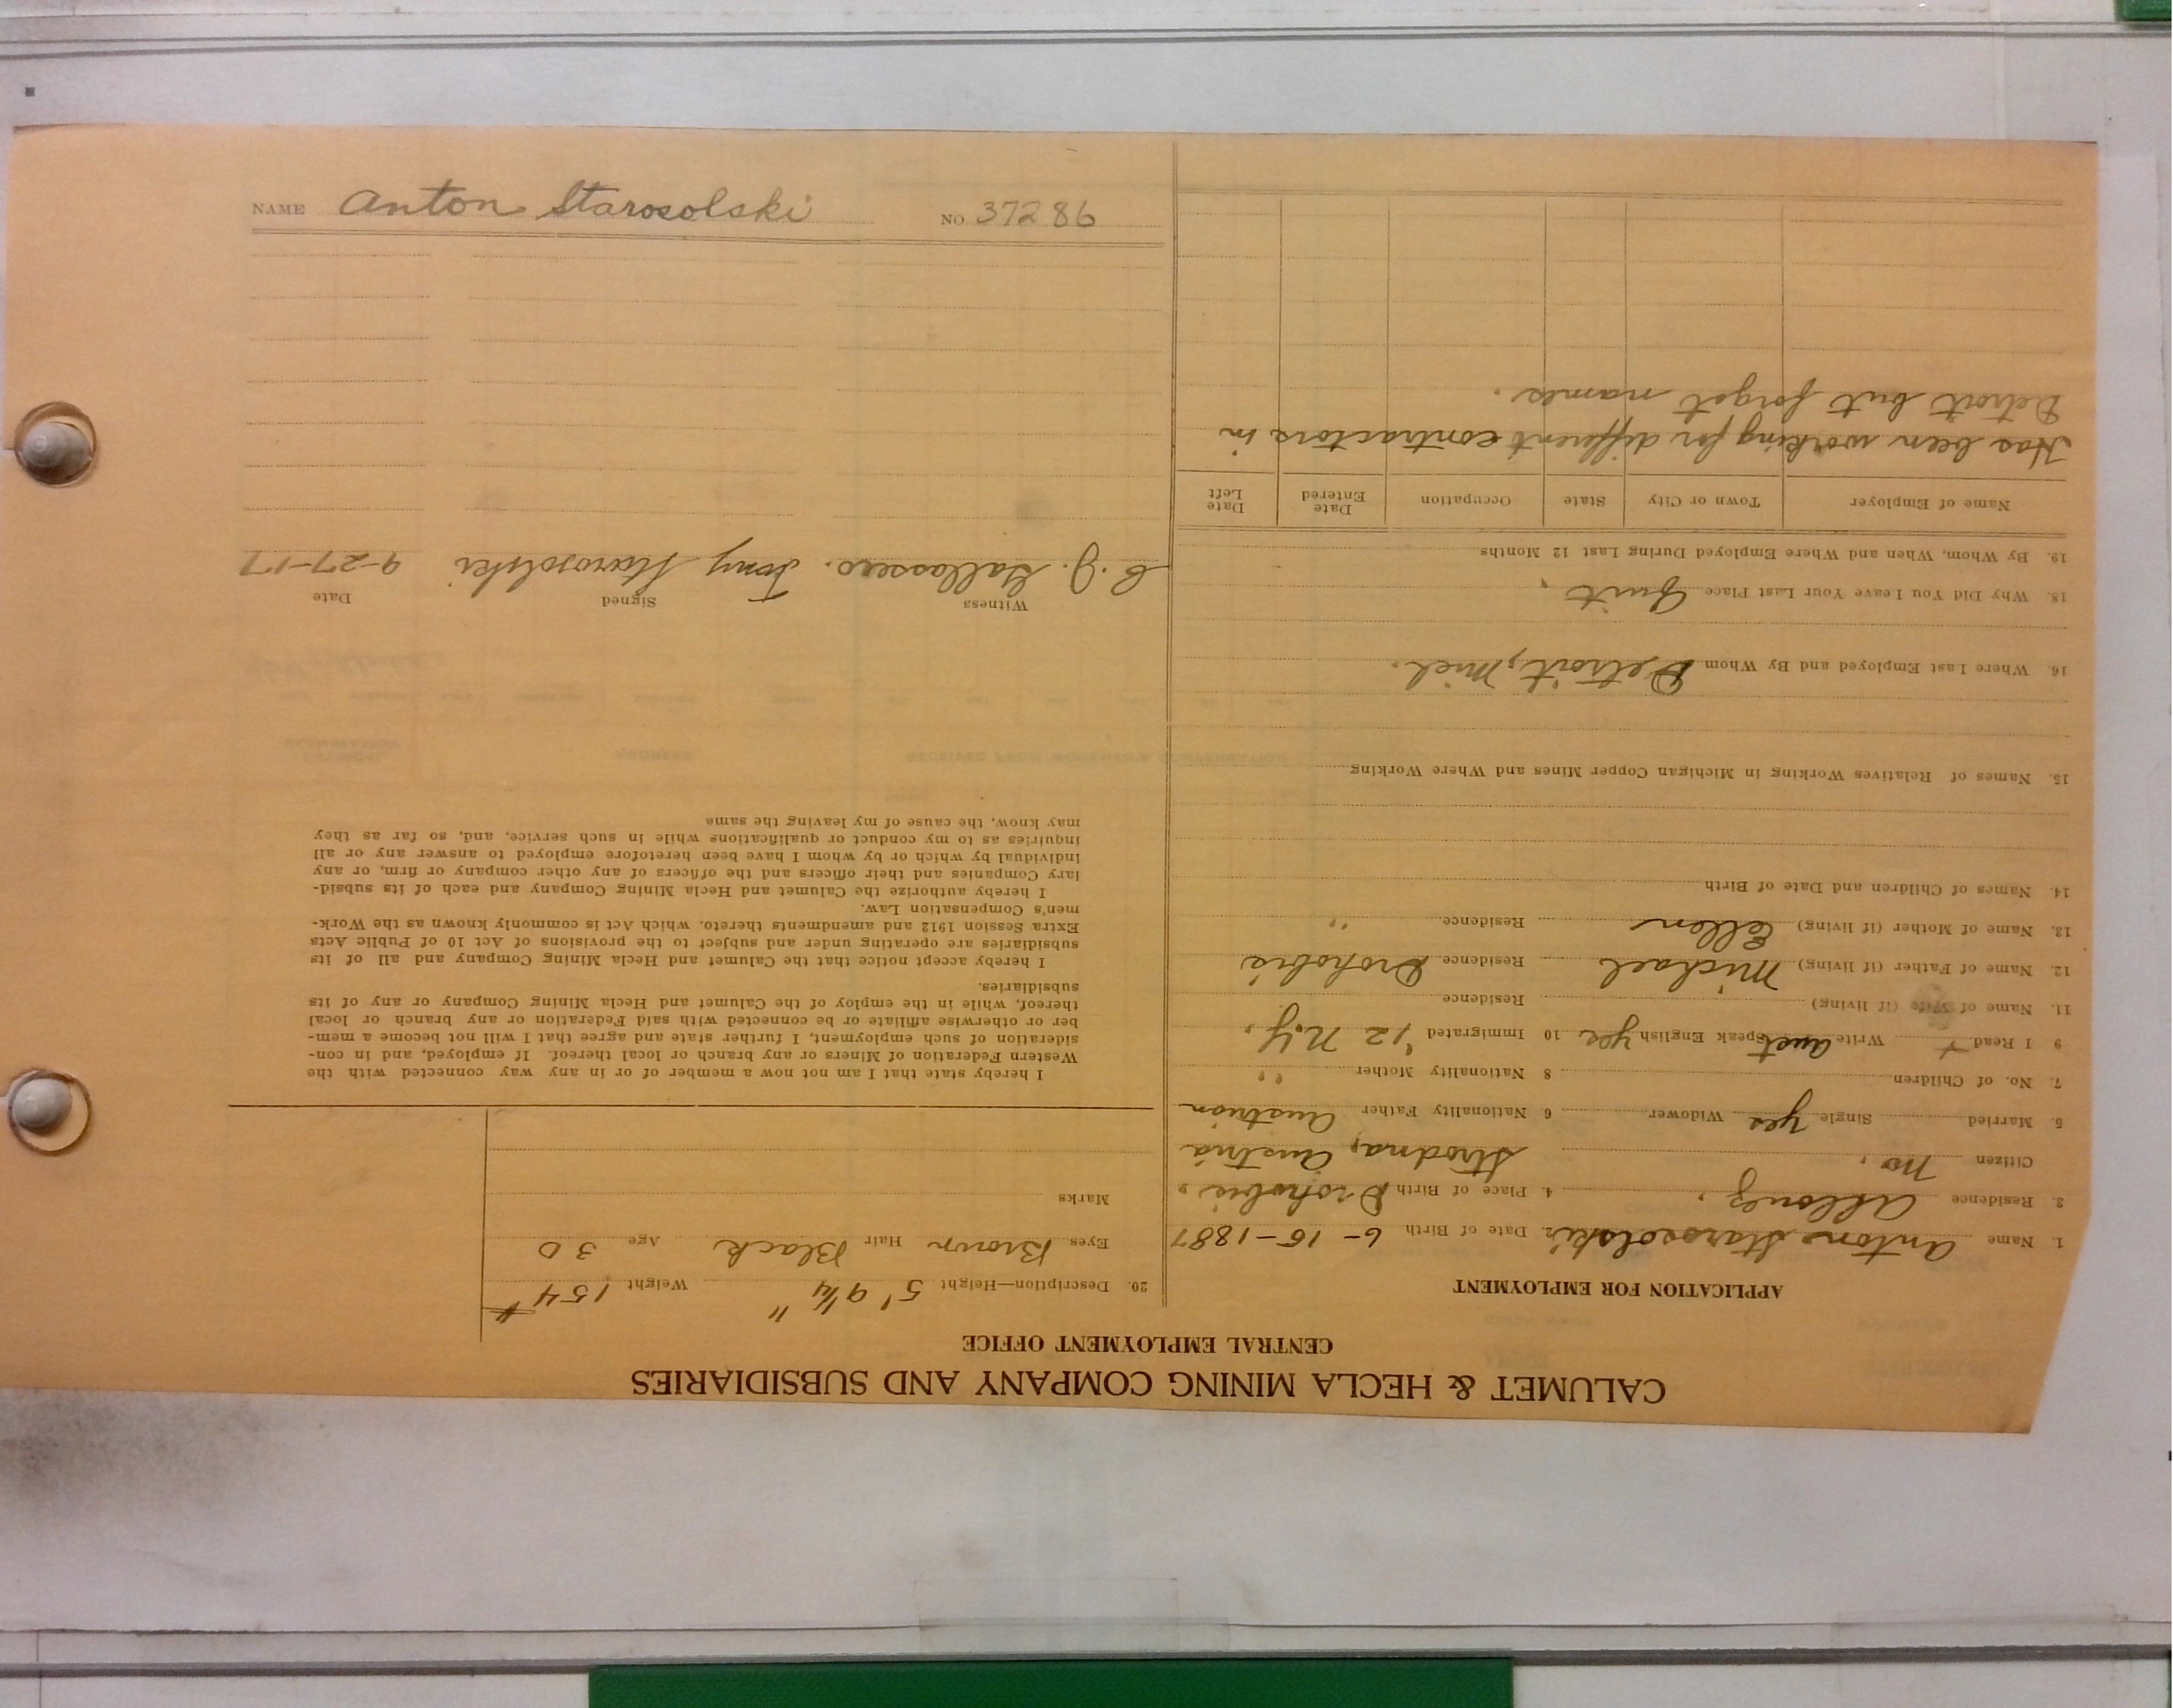 NAME Anton Starosolski NO. 37286
CALUMET & HECLA MINING COMPANY AND SUBSIDIARIES
CENTRAL EMPLOYMENT OFFICE
APPLICATION FOR EMPLOYMENT
1. Name Anton Starosolski 2. Date of Birth 6-15-1887
3. Residence Allouez. 4. Place of Birth Drohobis,
Citizen No. Strodna, Austria
5. Married Single yes Widower 6 Nationality Father Austrian
7. No. of Children 8 Nationality Mother "
9 I Read + Write Aust Speak English yes 10 Immigrated '12 N.Y.
11. Name of Wife (if living) Residence
12. Name of Father (if living) Michael Residence Drohobis
13. Name of Mother (if living) Ellen Residence "
14. Names of Children and Date of Birth
15. Names of Relatives Working in Michigan Copper Mines and Where Working
16. Where Last Employed and By Whom Detroit, Mich.
18. Why Did You Leave Your Last Place Quit.
19. By Whom, When and Where Employed During Last 12 Months
Name of Employer Town or City State Occupation Date Entered Date Left
Has been working for different contractors in
Detroit but forgot names.
20. Description—Height 5' 9 1/4" Weight 154 #
Eyes Brown Hair Black Age 30
Marks
I hereby state that I am not now a member of or in any way connected with the
Western Federation of Miners or any branch or local thereof. If employed, and in con-
sideration of such employment, I further state and agree that I will not become a mem-
ber or otherwise affiliate or be connected with said Federation or any branch or local
thereof, while in the employ of the Calumet and Hecla Mining Company or any of its
subsidiaries.
I hereby accept notice that the Calumet and Hecla Mining Company and all of its
subsidiaries are operating under and subject to the provisions of Act 10 of Public Acts
Extra Session 1912 and amendments thereto, which Act is commonly known as the Work-
men's Compensation Law.
I hereby authorize the Calumet and Hecla Mining Company and each of its subsid-
iary Companies and their officers and the officers of any other company or firm, or any
individual by which or by whom I have been heretofore employed to answer any or all
inquiries as to my conduct or qualifications while in such service, and, so far as they
may know, the cause of my leaving the same
Witness Signed Date
Tony Starosolski 9-27-17